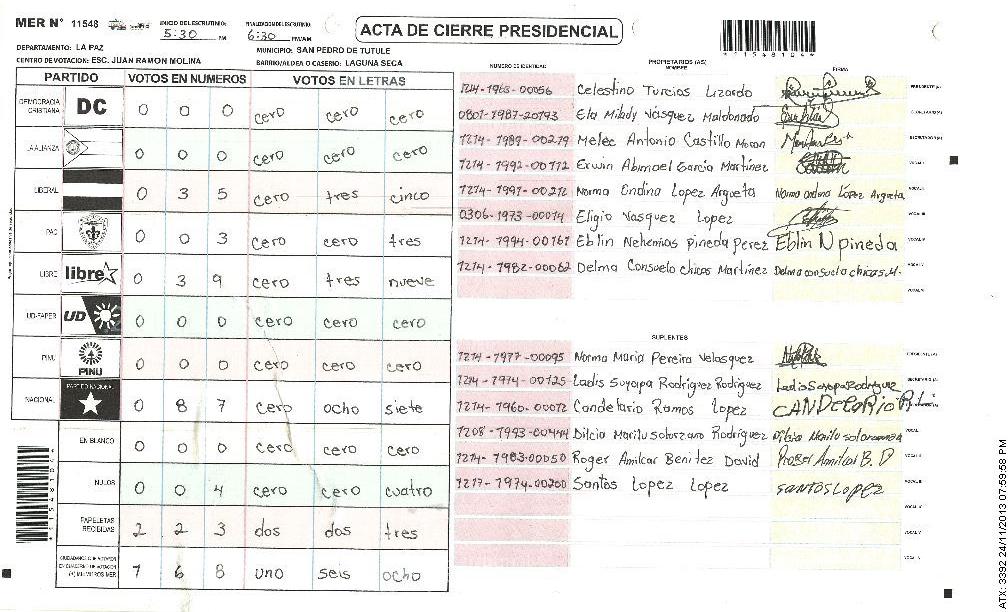 MER N° 11548 INICIO DE ESCRUTINIO: 5:30 PM FINALIZACION DEL ESCRUTINIO: 6:30 PM/AM ACTA DE CIERRE PRESIDENCIAL
*11548104*
DEPARTAMENTO: LA PAZ MUNICIPIO: SAN PEDRO DE TUTULE
CENTRO DE VOTACION: ESC. JUAN RAMON MOLINA BARRIO/ALDEA O CASERIO: LAGUNA SECA
PARTIDO VOTOS EN NUMEROS VOTOS EN LETRAS
DEMOCRACIA CRISTIANA DC 0 0 0 cero cero cero
LA ALIANZA 0 0 0 cero cero cero
LIBERAL 0 3 5 cero tres cinco
PAC 0 0 3 cero cero tres
LIBRE libre 0 3 9 cero tres nueve
UD-FAPER UD 0 0 0 cero cero cero
PINU PINU 0 0 0 cero cero cero
NACIONAL PARTIDO NACIONAL 0 8 7 cero ocho siete
EN BLANCO 0 0 0 cero cero cero
NULOS 0 0 4 cero cero cuatro
PAPELETAS RECIBIDAS 2 2 3 dos dos tres
CIUDADANOS QUE VOTARON EN CUADERNO DE VOTACION (+) MIEMBROS MER 1 6 8 uno seis ocho
NUMERO DE IDENTIDAD PROPIETARIOS (AS) NOMBRE FIRMA
1214-1963-00056 Celestino Turcios Lizardo PRESIDENTE (A)
0801-1987-20793 Ela Milady Vásquez Maldonado SECRETARIO (A)
1214-1989-00279 Melec Antonio Castillo Moran ESCRUTADOR (A)
1214-1992-00112 Erwin Abimael Garcia Martínez VOCAL I
1214-1997-00212 Norma Ondina Lopez Argueta Norma ondina López Argueta VOCAL II
0306-1973-00014 Eligio Vasquez Lopez VOCAL III
1214-1994-00161 Eblin Nehemias Pineda Perez Eblin N pineda VOCAL IV
1214-1982-00062 Delma Consuelo chicas Martínez Delma consuelo chicas M. VOCAL V
VOCAL VI
SUPLENTES
1214-1977-00095 Norma Maria Pereira Velasquez PRESIDENTE (A)
1214-1974-00125 Ladis Suyapa Rodriguez Rodriguez Ladis Suyapa Rodriguez SECRETARIO (A)
1214-1960-00012 Candelario Ramos Lopez CANDELARIO R.L
1208-1993-00444 Dilcia Marilu Solorzano Rodriguez Dilcia Marilu solorzano VOCAL I
1214-1983-00050 Roger Amilcar Benitez David Roger Amilcar B. D VOCAL II
1217-1974-00200 Santos Lopez Lopez SANTOS LOPEZ VOCAL III
VOCAL IV
VOCAL V
VOCAL VI
*11548104*
ATX: 3392 24/11/2013 07:59:58 PM